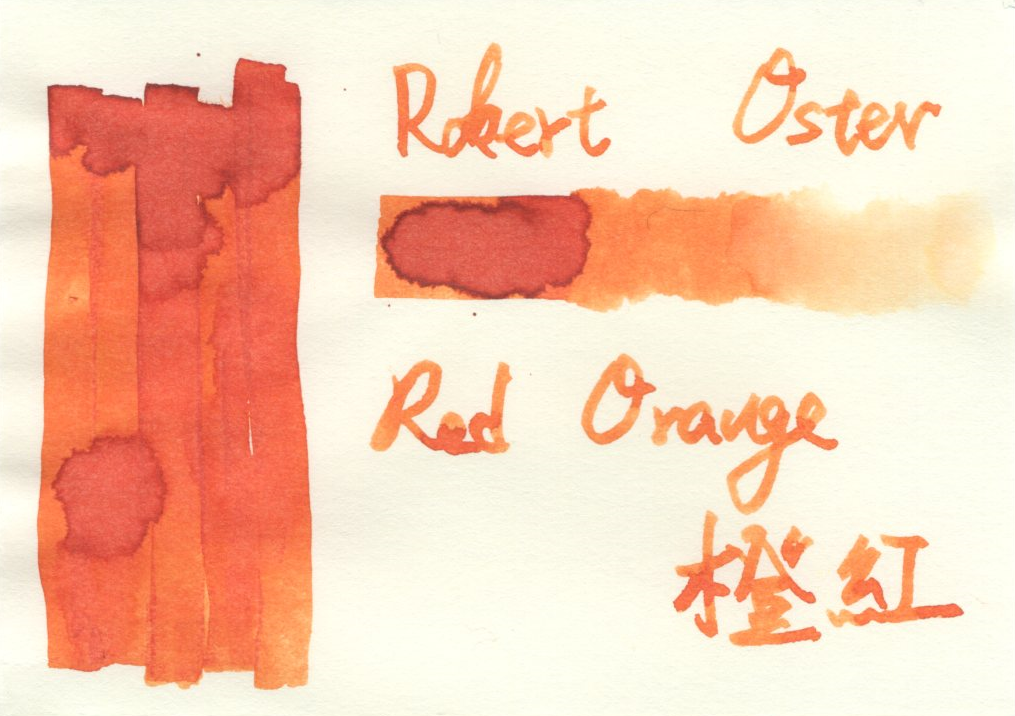 Robert Oster
Red Orange
橙紅